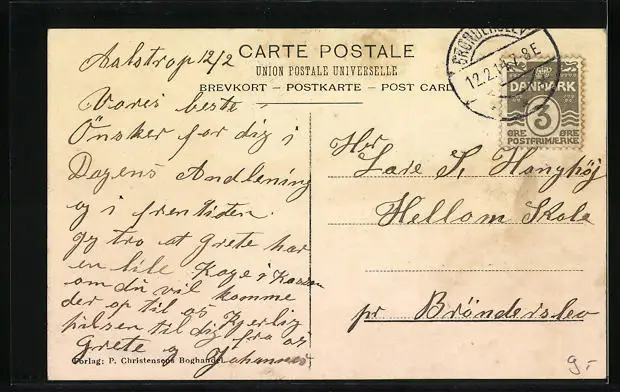 Aalstrop 12/2
CARTE POSTALE
UNION POSTALE UNIVERSELLE
BREVKORT – POSTKARTE – POST CARD
BRØNDERSLEV
12.2.1 7-8E
DANMARK
3
ØRE ØRE
POSTFRIMÆRKE
Vores beste
Önsker for dig i
Dagens Andlening
og i fremtiden.
jy tro at Grete har
en lile Kage i Kassen
om du vil komme
der op til os Kjerlig
hilsen til dig fra os
Grete og Johannes
Hr
Lare S. Hanghöj
Hellom Skole
pr Brönderslev
Forlag: P. Christensens Boghandel.
9.-